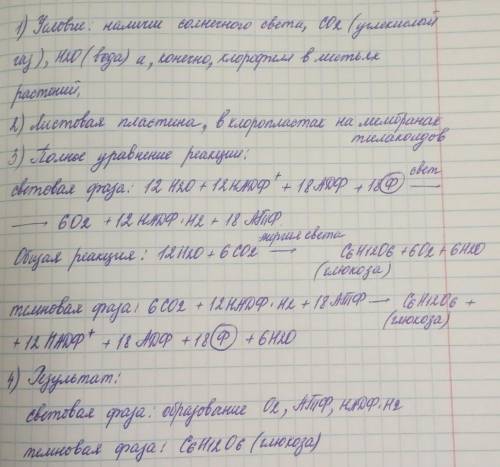 1) Условие: наличие солнечного света, CO2 (углекислой
газ), H2O (вода) и, конечно, хлорофилл в листьях
растений.
2) Листовая пластина, в хлоропластах на мембранах
тилакоидов
3) Полное уравнение реакции:
световая фаза: 12 H2O + 12 НАДФ⁺ + 18 АДФ + 18 Ф свет ⟶
⟶ 6O2 + 12 НАДФ·H2 + 18 АТФ
Общая реакция: 12H2O + 6CO2 энергия света ⟶ C6H12O6 + 6O2 + 6H2O
(глюкоза)
темновая фаза: 6CO2 + 12НАДФ·H2 + 18АТФ ⟶ C6H12O6 +
(глюкоза)
+ 12 НАДФ⁺ + 18 АДФ + 18 Ф + 6H2O
4) Результат:
световая фаза: образование O2, АТФ, НАДФ·H2
темновая фаза: C6H12O6 (глюкоза)